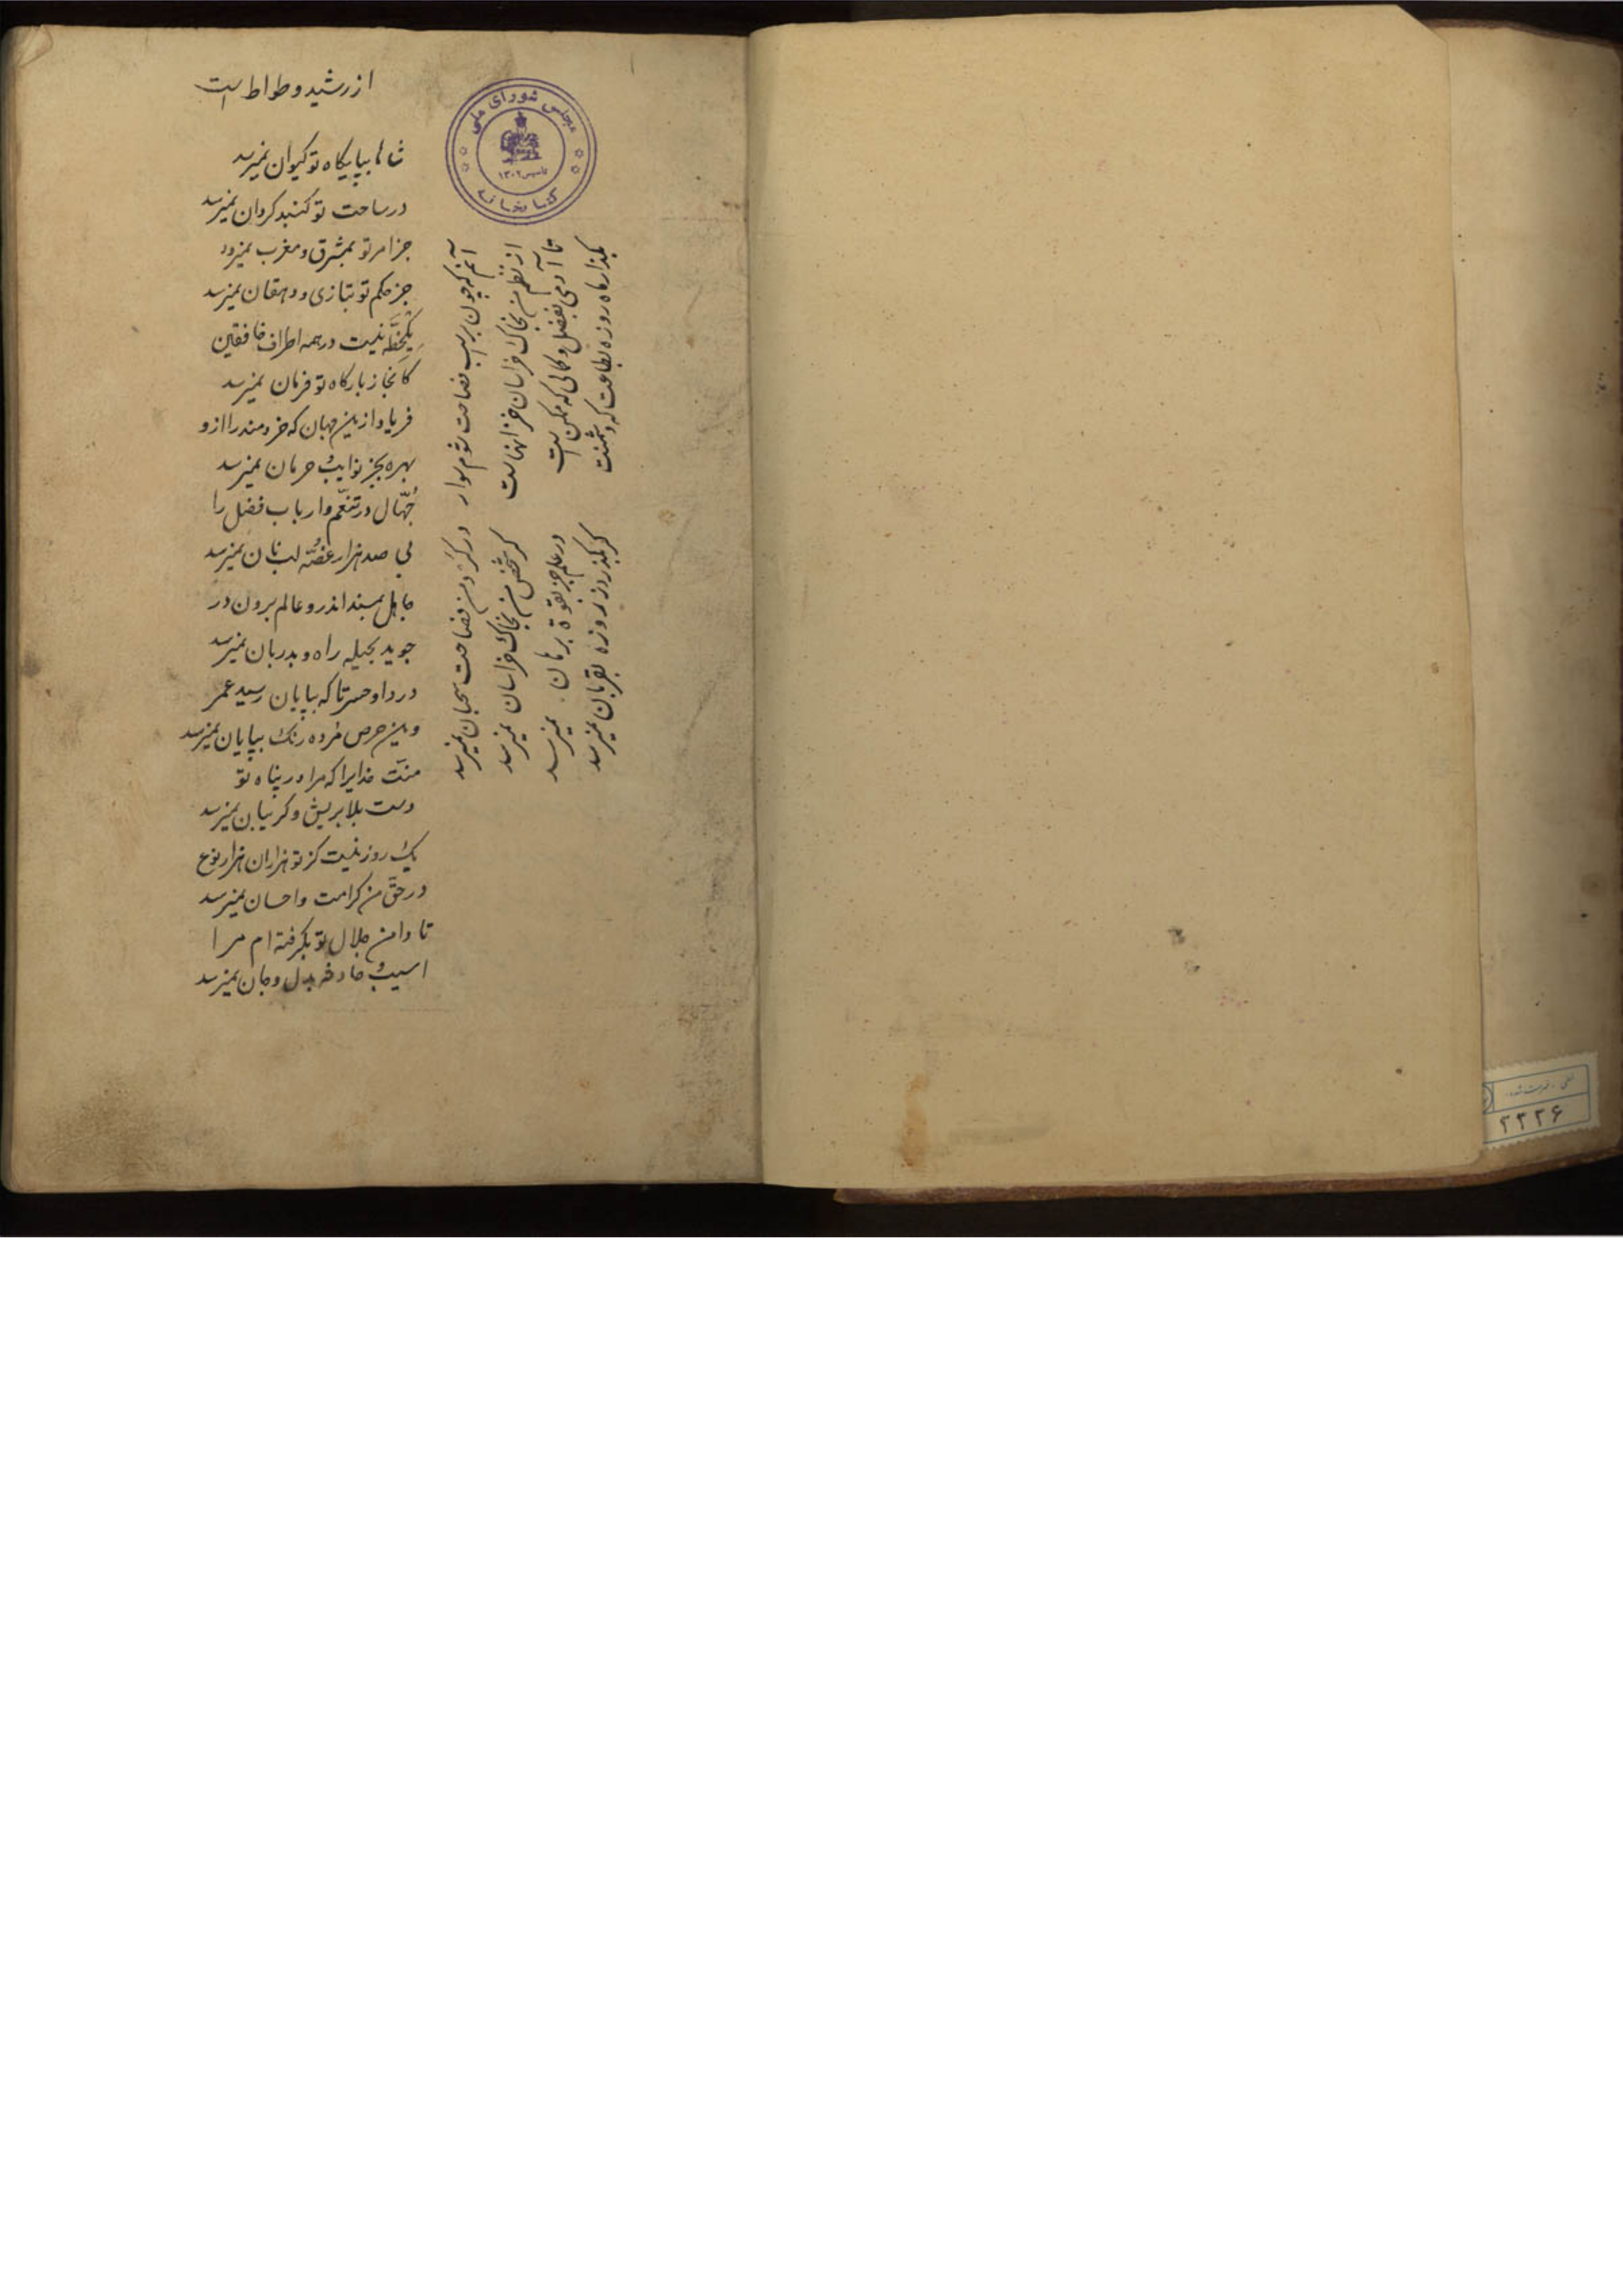 از رشید وطواط است
شاها بپایکاه تو کیوان نمیرسد
در ساحت تو کنبد کردان نمیرسد
جز امر تو بمشرق و مغرب نمیرود
جز حکم تو بتازی و دهقان نمیرسد
یکخطّه نیست در همه اطراف خافقین
کانجا ز بارکاه تو فرمان نمیرسد
فریاد ازین جهان که خردمند را ازو
بهره بجز نوایب و حرمان نمیرسد
جُهّال در تنعّم و ارباب فضل را
بی صد هزار غصّه لب نان نمیرسد
جاهل بمسند اندر و عالم برون در
جوید بحیله راه و بدربان نمیرسد
دردا و حسرتا که بپایان رسید عمر
وین حرص مرده رنک بپایان نمیرسد
منّت خدایرا که مرا در پناه تو
دست بلا بریش و کریبان نمیرسد
یک روز نیست کز تو هزاران هزار نوع
در حقّ من کرامت و احسان نمیرسد
تا دامن جلال تو بکرفته ام مرا
اسیب حادثه بدل و جان نمیرسد
آنم که چون براسب فصاحت شوم سوار
در کرد من فصاحت سحبان نمیرسد
از نظم من بخاک خراسان خزانهاست
کر شخص من بخاک خراسان نمیرسد
تا آدمی بفضل و کمالی که ممکن است
در علم جز بقوة برهان نمیرسد
بکذار ماه روزه بطاعت که دشمنت
کر بکذرد ز روزه بقربان نمیرسد
مجلس شورای ملی
کتابخانه
تاسیس ۱۳۰۲
خطی، فهرست شده
۲۲۲۶